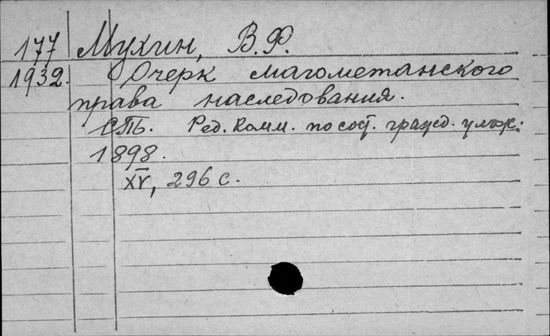 177 Мухин, В.Ф.
1932. Очерк магометанского
права наследования.
СПБ. Ред. Комм. по сост. гражд. улож.
1898.
XV, 296 с.